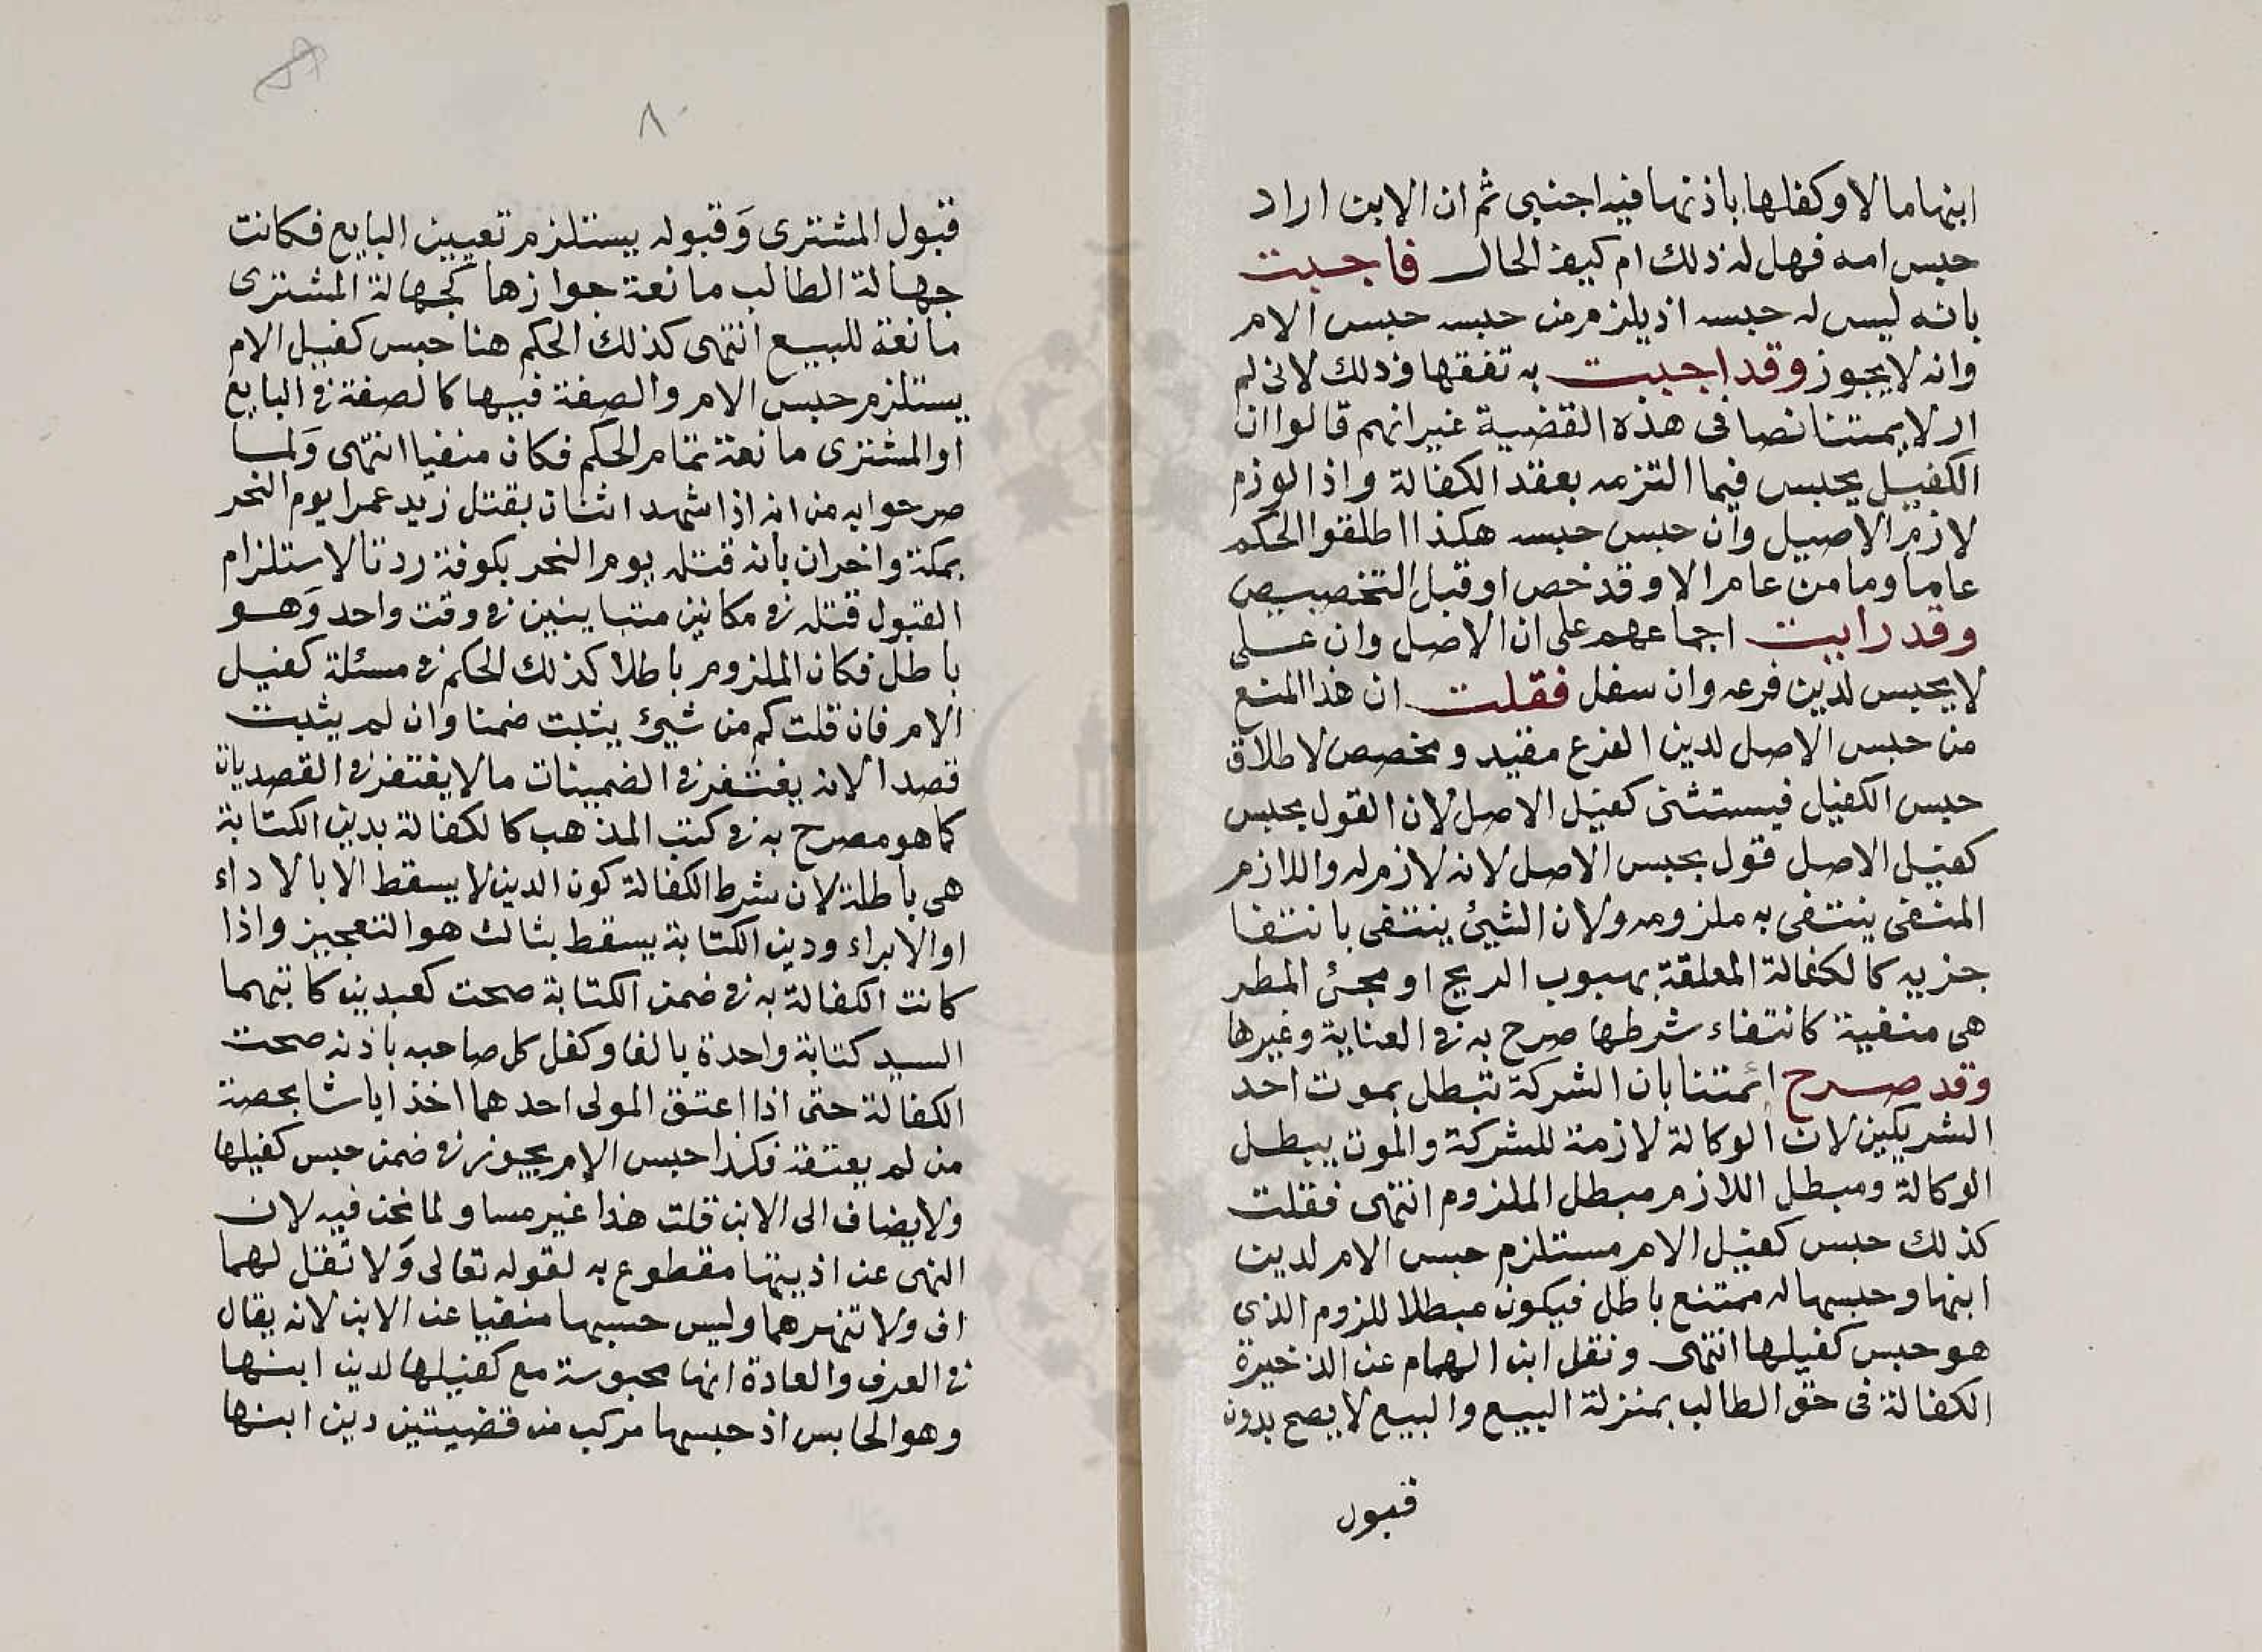 ابنها مالا وكفلها باذنها فيه اجنبي ثم ان الابن اراد
حبس امه فهل له ذلك ام كيف الحال فاجبت
بانه ليس له حبسه اذ يلزم من حبسه حبس الام
وانه لا يجوز وقد اجبت به تفقها وذلك لانى لم
ار لايمتنا نصا في هذه القضية غير انهم قالوا ان
الكفيل يحبس فيما التزمه بعقد الكفالة واذا لوزم
لازم الاصيل وان حبس حبسه هكذا اطلقوا الحكم
عاما وما من عام الا وقد خص او قبل التخصيص
وقد رايت اجماعهم على ان الاصل وان على
لا يحبس لدين فرعه وان سفل فقلت ان هذا المنع
من حبس الاصل لدين الفرع مفيد ومخصص لاطلاق
حبس الكفيل فيستثنى كفيل الاصل لان القول بحبس
كفيل الاصل قول بحبس الاصل لانه لازم له واللازم
المنفى ينتفى به ملزومه ولان الشيئ ينتفى بانتفا
جزيه كالكفالة المعلقة بهبوب الريح او مجئ المطر
هى منفية كانتفاء شرطها صرح به فى العناية وغيرها
وقد صرح ائمتنا بان الشركة تبطل بموت احد
الشريكين لان الوكالة لازمة للشركة والموت يبطل
الوكالة ومبطل اللازم مبطل الملزوم انتهى فقلت
كذلك حبس كفيل الام مستلزم حبس الام لدين
ابنها وحبسها له ممتنع باطل فيكون مبطلا للزوم الذى
هو حبس كفيلها انتهى ونقل ابن الهمام عن الذخيرة
الكفالة فى حق الطالب بمنزلة البيع والبيع لا يصح بدون
قبول
٨٠
قبول المشترى وَقبوله يستلزم تعيين البايع فكانت
جهالة الطالب مانعة جوازها كجهالة المشترى
مانعة للبيع انتهى كذلك الحكم هنا حبس كفيل الام
يستلزم حبس الام والصفة فيها كالصفة فى البايع
او المشترى مانعة تمام الحكم فكان منفيا انتهى وَلمبا
صرحوا به من انه اذا شهد اثنان بقتل زيد عمرا يوم النحر
بمكة واخران بانه قتله يوم النحر بكوفة ردتا لاستلزام
القبول قتله فى مكانين متباينين فى وقت واحد وَهو
باطل فكان الملزوم باطلا كذلك الحكم فى مسئلة كفيل
الام فان قلت كم من شيئ يثبت ضمنا وان لم يثبت
قصدا لانه يغتفر فى الضمينات ما لا يغتفر فى القصديات
كما هو مصرح به فى كتب المذهب كالكفالة بدين الكتابة
هى باطلة لان شرط الكفالة كون الدين لا يسقط الا بالاداء
او الابراء ودين الكتابة يسقط بثالث هو التعجيز واذا
كانت الكفالة به فى ضمن الكتابة صحت كعبدين كاتبهما
السيد كتابة واحدة بالف وكفل كل صاحبه باذنه صحت
الكفالة حتى اذا اعتق المولى احدهما اخذ ايا شا بحصة
من لم يعتقه فكذا حبس الام يجوز فى ضمن حبس كفيلها
ولا يضاف الى الابن قلت هذا غير مساو لما نحن فيه لان
النهى عن اذيتها مقطوع به لقوله تعالى وَلا تقل لهما
اف ولا تنهرهما وليس حبسها منفيا عن الابن لانه يقال
فى العرف والعادة انها محبوسة مع كفيلها لدين ابنها
وهو الحابس اذ حبسها مركب من قضيتين دين ابنها